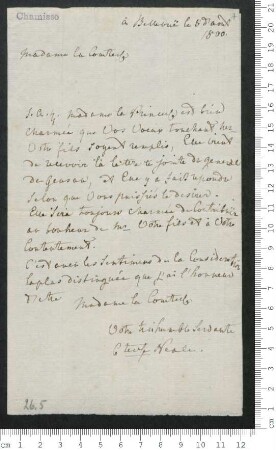 Chamisso
a Bellevue le 6 d'aout
1800.
Madame la Comtesse
S. A. R. Madame la Princesse est bien
charmée que Vos Voeux touchant
Votre fils soyent remplis, Elle vient
de recevoir la lettre ci jointe du general
de Geusau, et Elle y a fait repondre
selon que Vous puissiés le desirer.
Elle sera toujours charmée de contribuer
au bonheur de Mr Votre fils et à Votre
Contentement.
C'est avec les Sentimens de la Consideration
la plus distinguée que j'ai l'honneur
d'etre Madame la Comtesse
Votre très humble Servante
Ctesse Neale.
26.5
cm 1 2 3 4 5 6 7 8 9 10 11 12